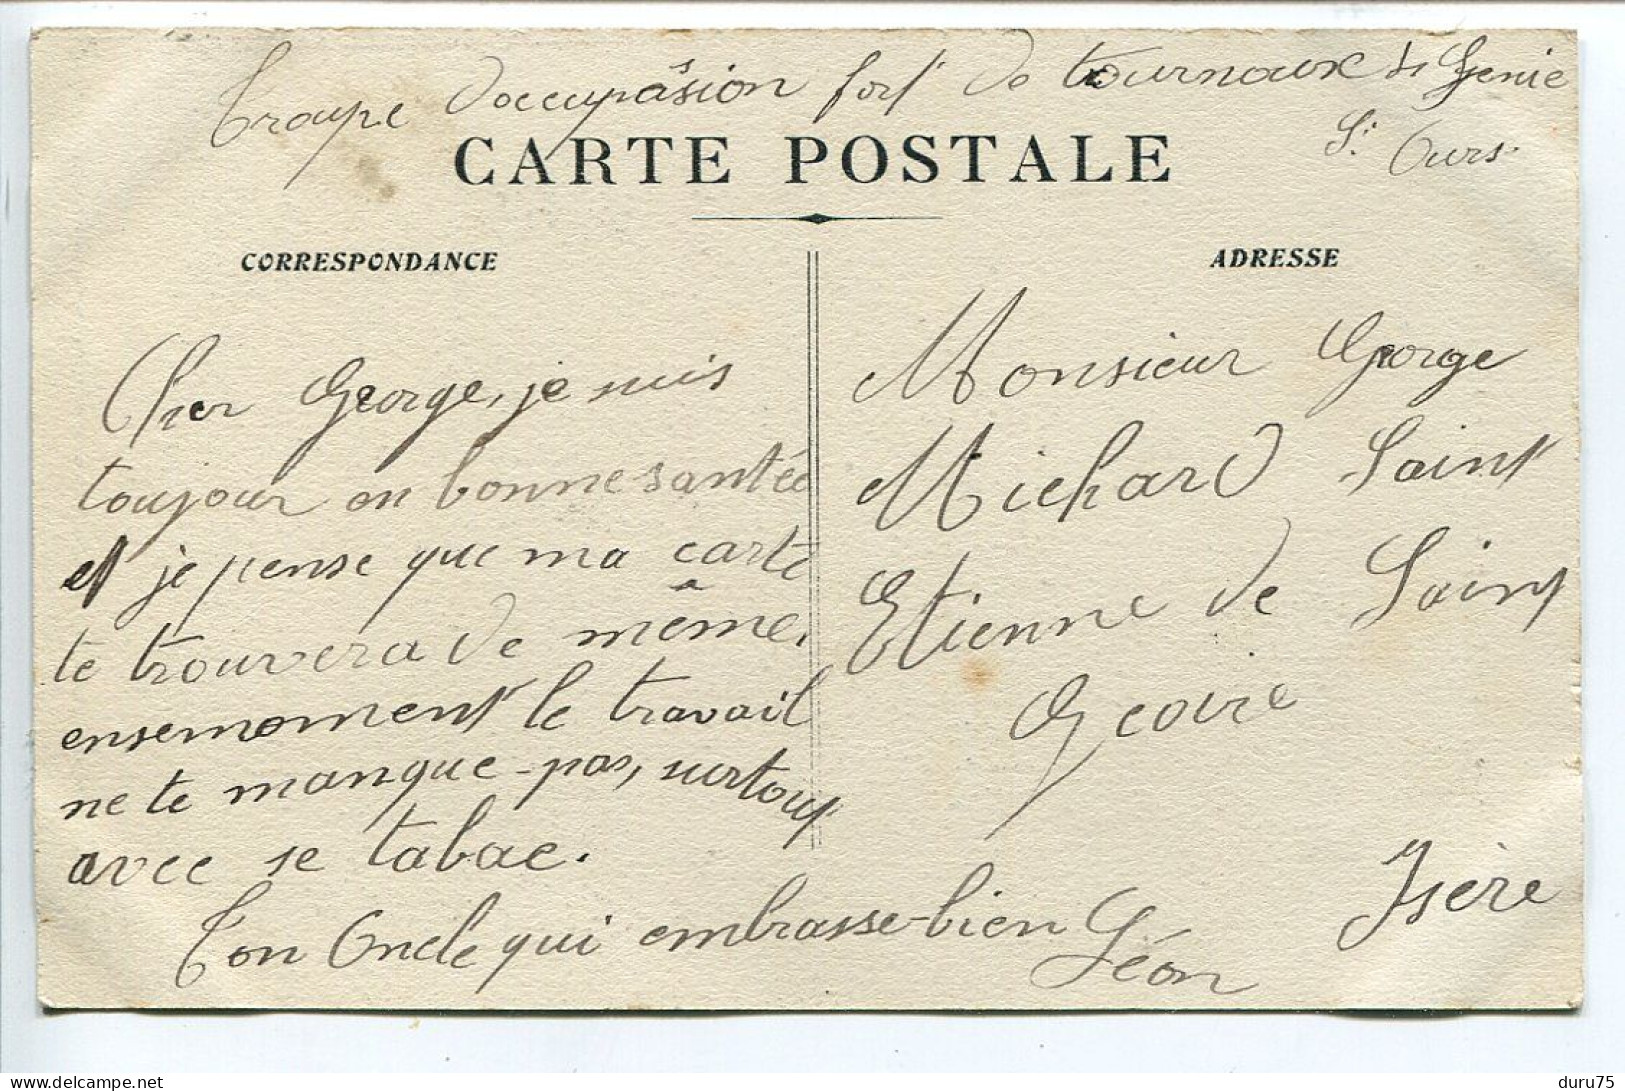 Troupe d'occupâsion fort de tournoux d Genie
St Ours
CARTE POSTALE
CORRESPONDANCE
ADRESSE
Cher George, je suis
toujour en bonne santée
et je pense que ma carte
te trouvera de même.
ensemoment le travail
ne te manque-pas, surtout
avec se tabac.
Ton Oncle qui embrasse-bien
Léon
Monsieur George
Michard Saint
Etienne de Saint
Geoire
Isère
delcampe.net
duru75